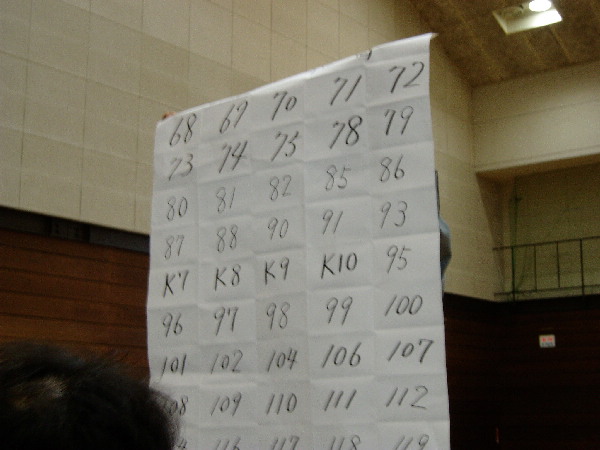 68 69 70 71 72
73 74 75 78 79
80 81 82 85 86
87 88 90 91 93
K7 K8 K9 K10 95
96 97 98 99 100
101 102 104 106 107
108 109 110 111 112
116 117 118 119